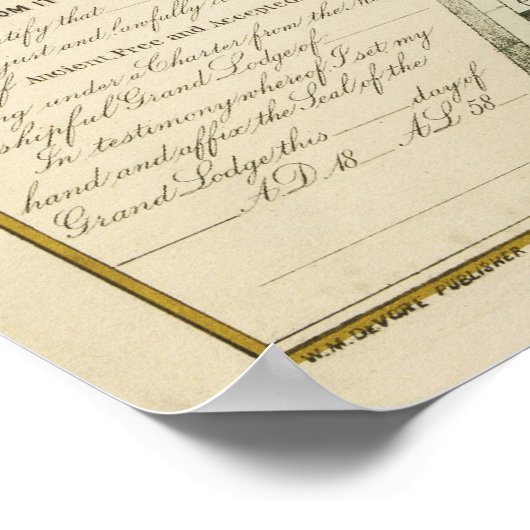 OM IT
tify that
just and lawfully
of Ancient, Free and Accepted
ng under a Charter from the M
shipful Grand Lodge of
In testimony whereof, I set my
hand and affix the Seal of the
Grand Lodge this day of
AD 18 AL 58
W.M. DEVORE PUBLISHER